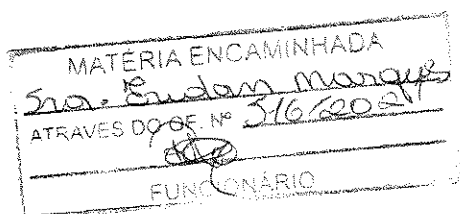 MATÉRIA ENCAMINHADA
Sra. Eridan Marques
ATRAVES DO OF. Nº 516/2021
FUNCIONÁRIO